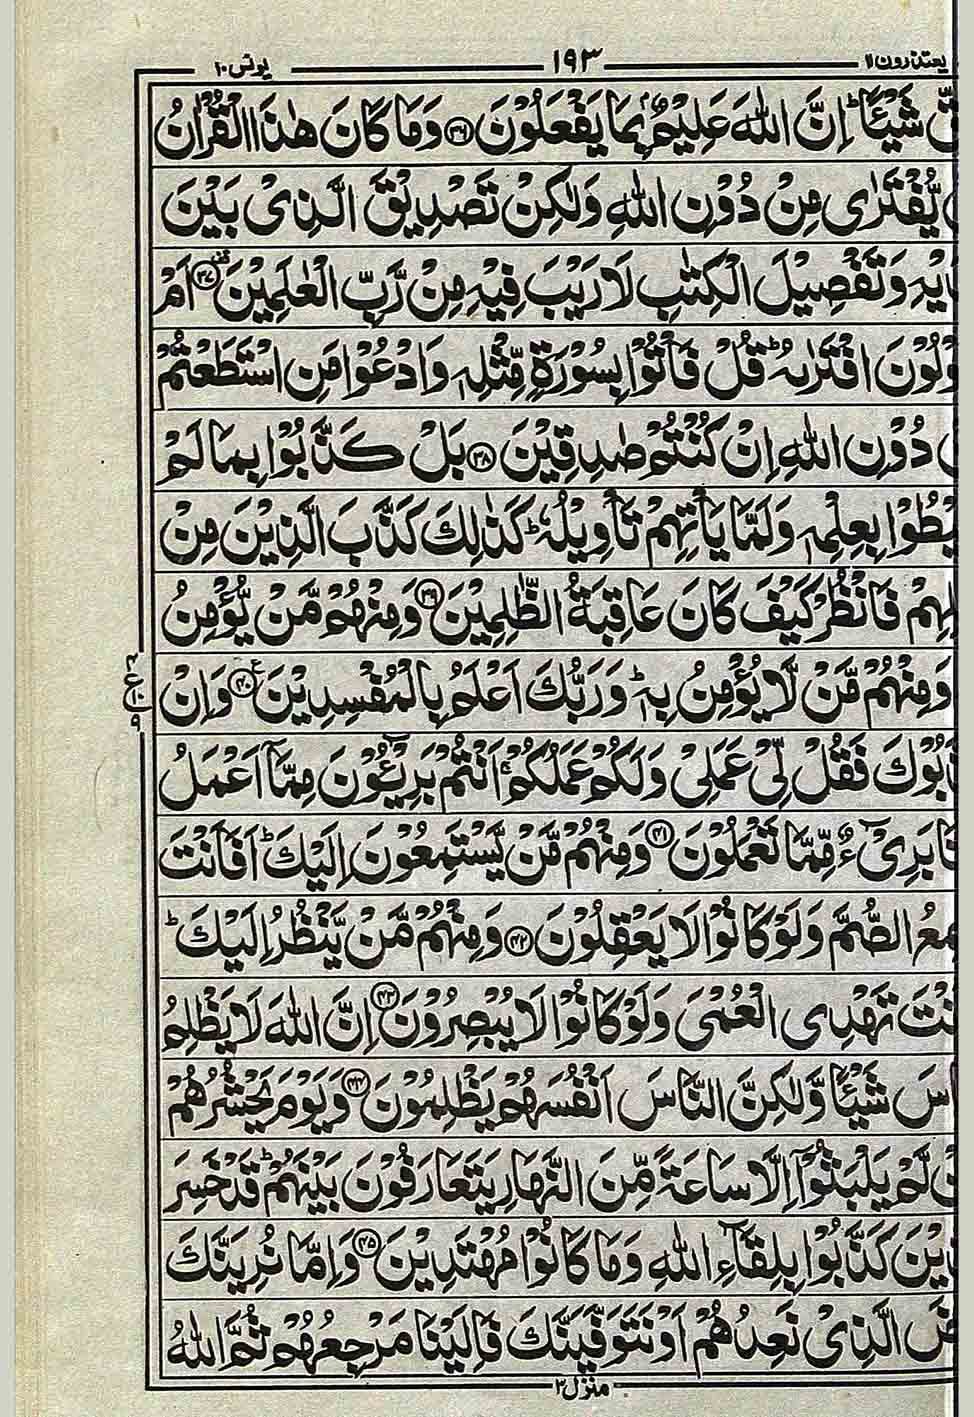 یعتذرون ۱۱ ۱۹۳ یونس ۱۰
شَيْـًٔا ؕ اِنَّ اللّٰهَ عَلِيْمٌۢ بِمَا يَفْعَلُوْنَ ﴿۳۶﴾ وَمَا كَانَ هٰذَا الْقُرْاٰنُ
يُّفْتَرٰى مِنْ دُوْنِ اللّٰهِ وَلٰكِنْ تَصْدِيْقَ الَّذِىْ بَيْنَ
وَتَفْصِيْلَ الْكِتٰبِ لَا رَيْبَ فِيْهِ مِنْ رَّبِّ الْعٰلَمِيْنَ ﴿۳۷﴾ اَمْ
افْتَرٰىهُ ؕ قُلْ فَاْتُوْا بِسُوْرَةٍ مِّثْلِهٖ وَادْعُوْا مَنِ اسْتَطَعْتُمْ
دُوْنِ اللّٰهِ اِنْ كُنْتُمْ صٰدِقِيْنَ ﴿۳۸﴾ بَلْ كَذَّبُوْا بِمَا لَمْ
يْطُوْا بِعِلْمِهٖ وَلَمَّا يَاْتِهِمْ تَاْوِيْلُهٗ ؕ كَذٰلِكَ كَذَّبَ الَّذِيْنَ مِنْ
لِهِمْ فَانْظُرْ كَيْفَ كَانَ عَاقِبَةُ الظّٰلِمِيْنَ ﴿۳۹﴾ وَمِنْهُمْ مَّنْ يُّؤْمِنُ
وَمِنْهُمْ مَّنْ لَّا يُؤْمِنُ بِهٖ ؕ وَرَبُّكَ اَعْلَمُ بِالْمُفْسِدِيْنَ ﴿۴۰﴾ وَاِنْ
بُوْكَ فَقُلْ لِّىْ عَمَلِىْ وَلَكُمْ عَمَلُكُمْ ۚ اَنْتُمْ بَرِيْٓـــُٔوْنَ مِمَّاۤ اَعْمَلُ
بَرِىْٓءٌ مِّمَّا تَعْمَلُوْنَ ﴿۴۱﴾ وَمِنْهُمْ مَّنْ يَّسْتَمِعُوْنَ اِلَيْكَ ؕ اَفَاَنْتَ
مِعُ الصُّمَّ وَلَوْ كَانُوْا لَا يَعْقِلُوْنَ ﴿۴۲﴾ وَمِنْهُمْ مَّنْ يَّنْظُرُ اِلَيْكَ ؕ
نْتَ تَهْدِى الْعُمْىَ وَلَوْ كَانُوْا لَا يُبْصِرُوْنَ ﴿۴۳﴾ اِنَّ اللّٰهَ لَا يَظْلِمُ
اسَ شَيْـًٔا وَّلٰكِنَّ النَّاسَ اَنْفُسَهُمْ يَظْلِمُوْنَ ﴿۴۴﴾ وَيَوْمَ يَحْشُرُهُمْ
لَّمْ يَلْبَثُوْۤا اِلَّا سَاعَةً مِّنَ النَّهَارِ يَتَعَارَفُوْنَ بَيْنَهُمْ ؕ قَدْ خَسِرَ
يْنَ كَذَّبُوْا بِلِقَآءِ اللّٰهِ وَمَا كَانُوْا مُهْتَدِيْنَ ﴿۴۵﴾ وَاِمَّا نُرِيَنَّكَ
ضَ الَّذِىْ نَعِدُهُمْ اَوْ نَتَوَفَّيَنَّكَ فَاِلَيْنَا مَرْجِعُهُمْ ثُمَّ اللّٰهُ
منزل ۳